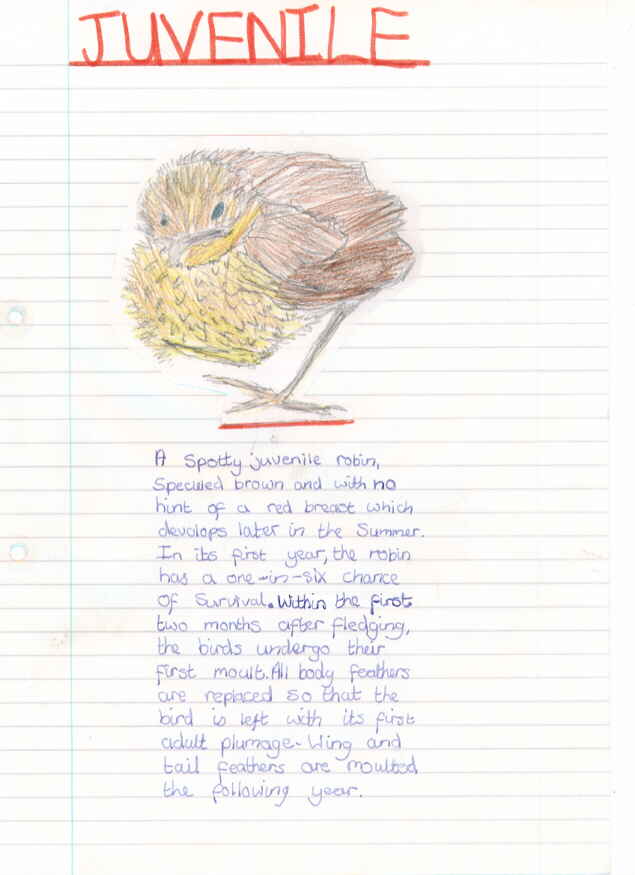 JUVENILE
A Spotty juvenile robin,
Speculed brown and with no
hint of a red breast which
devolops later in the Summer.
In its first year, the robin
has a one-in-six chance
Of Survival. Within the first
two months after fledging,
the birds undergo their
first moult. All body feathers
are replaced so that the
bird is left with its first
adult plumage. Wing and
tail feathers are moulted
the following year.